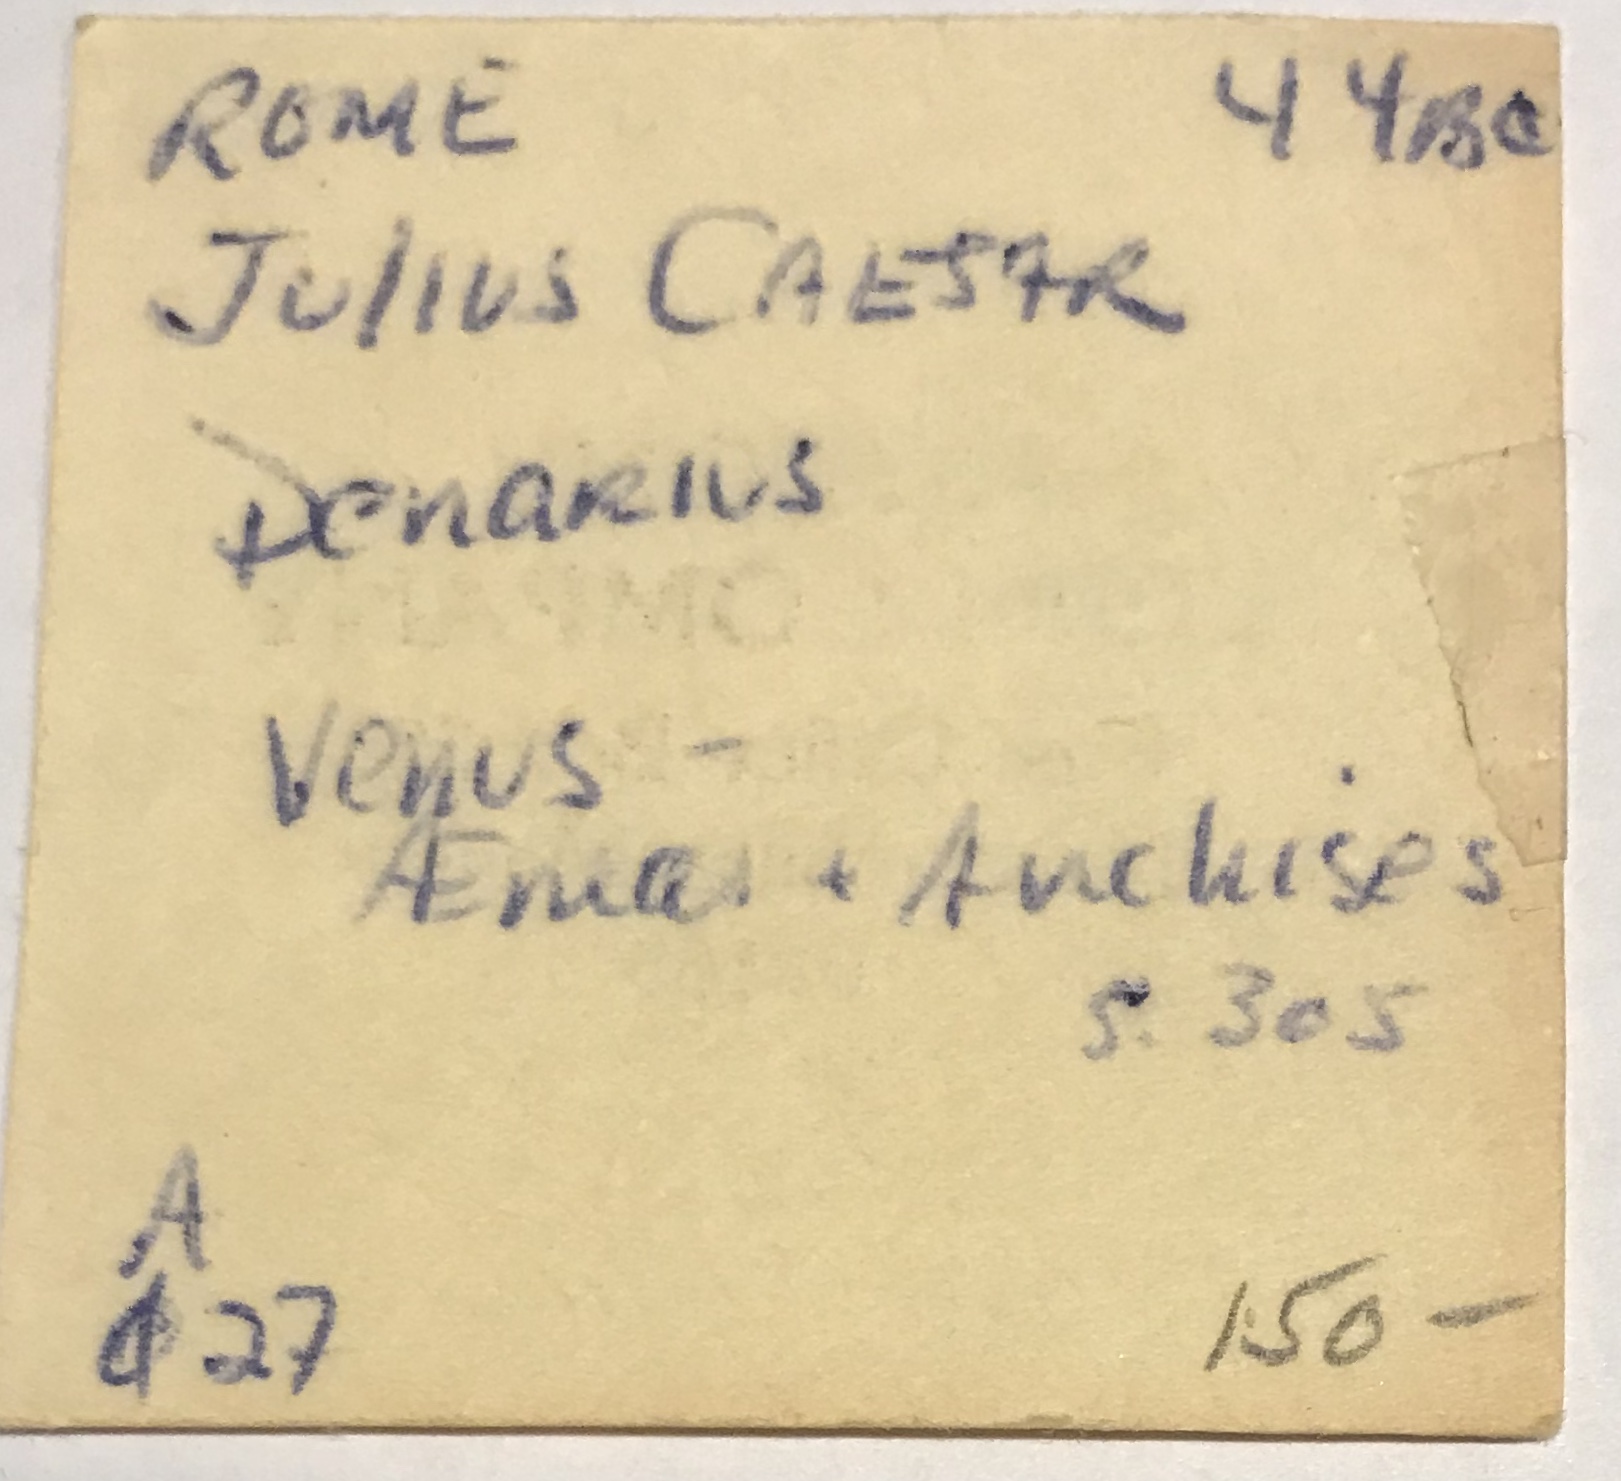 ROME 44BC
Julius CAESAR
Denarius
Venus -
+ Anchises
S. 305
A
¢27
150-